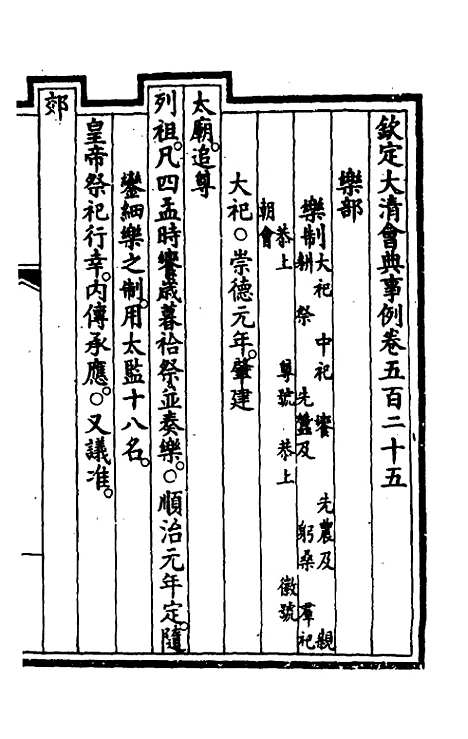 欽定大清會典事例卷五百二十五
樂部
樂制
大祀 中祀 饗 先農及 親
耕 祭 先蠶及 躬桑 羣祀
恭上 尊號 恭上 徽號
朝會
大祀○崇德元年。肇建
太廟。追尊
列祖。凡四孟時饗歲暮祫祭。並奏樂。○順治元年定。隨
鑾細樂之制。用太監十八名。
皇帝祭祀行幸。內傳承應。○又議准。
郊